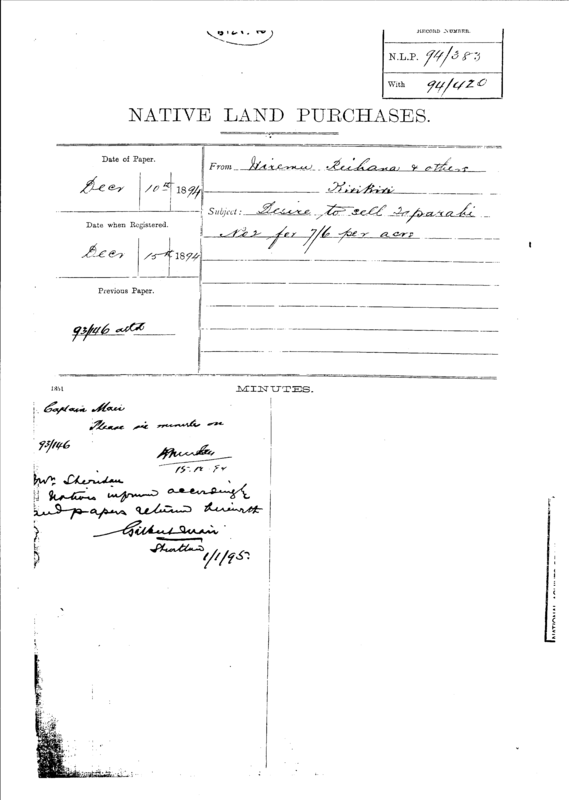 RECORD NUMBER.
N.L.P. 94/383
With 94/420
NATIVE LAND PURCHASES.
Date of Paper.
Decr 10th 1894
Date when Registered.
Decr 15th 1894
Previous Paper.
93/146 attd
From Wiremu Reihana & others
Kirikiri
Subject: Desire to sell
No 2 for 7/6 per acre
1351
MINUTES.
Captain Mair
Please see minute on
93/146
15.12.94
Mr. Sheridan
Natives informed accordingly
and papers returned herewith
Gilbert Mair
1/1/95.